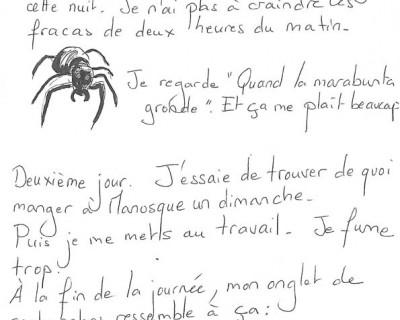 cette nuit. Je n'ai pas à craindre les
fracas de deux heures du matin.
Je regarde "Quand la marabunta
gronde". Et ça me plaît beaucoup
Deuxième jour. J'éssaie de trouver de quoi
manger à Manosque un dimanche.
Puis je me mets au travail. Je fume
trop.
À la fin de la journée, mon onglet de
ressemble à ça :